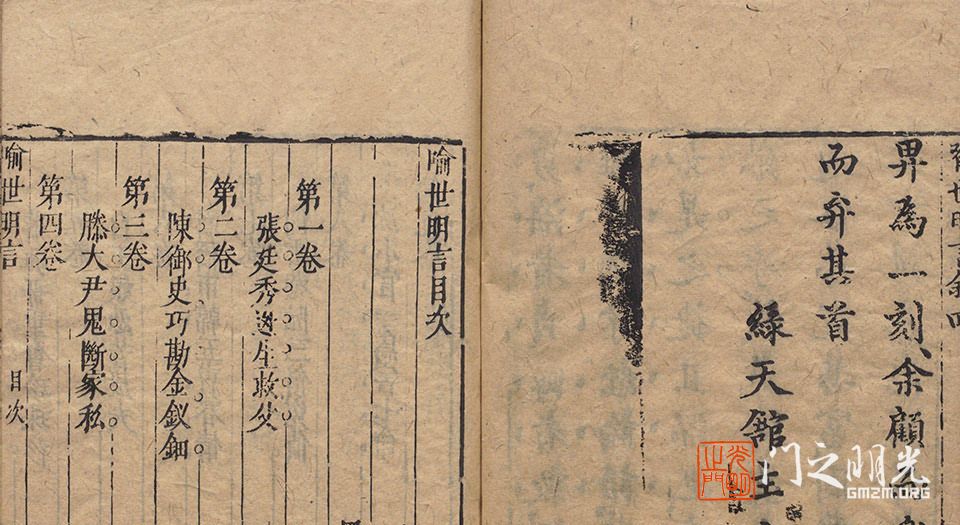 畀為一刻、余顧
而弃其首
綠天館主
喻世明言目次
第一卷
張廷秀逃生救父
第二卷
陳御史巧勘金釵鈿
第三卷
滕大尹鬼斷家私
第四卷
喻世明言
目次
门之明光
GMZM.ORG